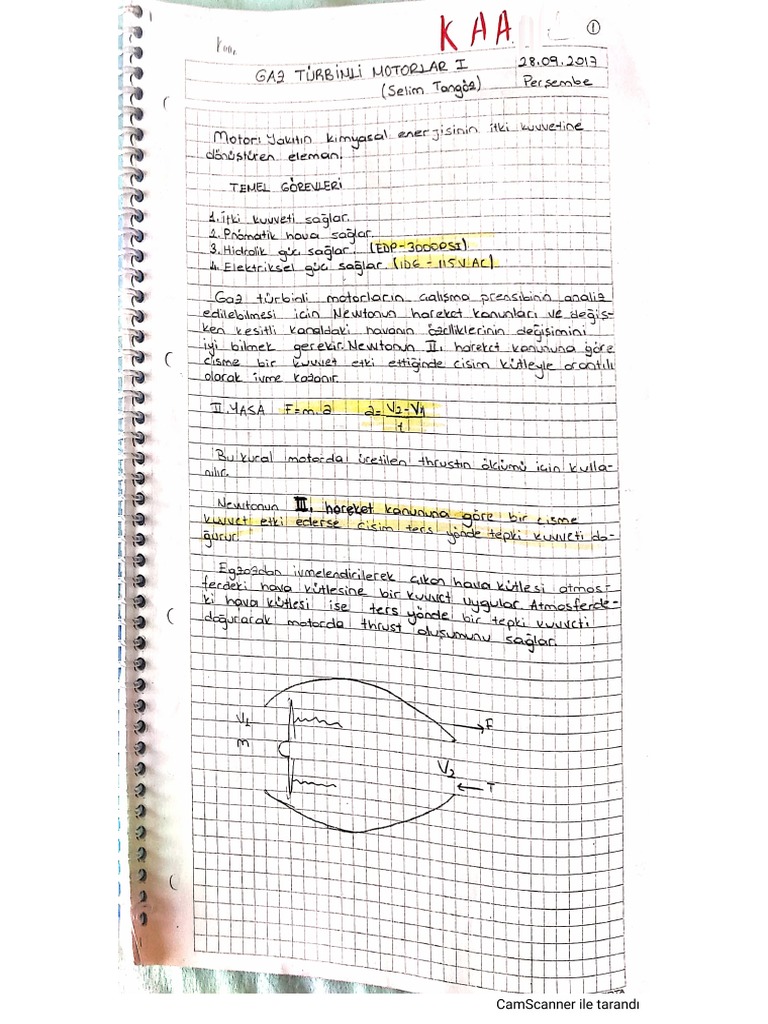 KAA
1
GAZ TÜRBİNLİ MOTORLAR I
28.09.2017
(Selim Tangöz)
Perşembe
Motor: Yakıtın kimyasal enerjisinin itki kuvvetine
dönüştüren eleman.
TEMEL GÖREVLERİ
1. İtki kuvveti sağlar.
2. Pnömatik hava sağlar.
3. Hidrolik güç sağlar. (EDP-3000PSI)
4. Elektriksel güç sağlar. (IDG - 115V AC)
Gaz türbinli motorların çalışma prensibina analiz
edilebilmesi için Newtonun hareket kanunları ve değiş-
ken kesitli kanaldaki havanın özelliklerinin değişimini
iyi bilmek gerekir. Newtonun II. hareket kanununa göre
cisme bir kuvvet etki ettiğinde cisim kütleyle orantılı
olarak ivme kazanır.
II. YASA F=m.a a= V2-V1 / t
Bu kural motorda üretilen thrustın ölçümü için kulla-
nılır.
Newtonun III. hareket kanununa göre bir cisme
kuvvet etki ederse cisim ters yönde tepki kuvveti do-
ğurur.
Egzozdan ivmelendirilerek çıkan hava kütlesi atmos-
ferdeki hava kütlesine bir kuvvet uygular. Atmosferde-
ki hava kütlesi ise ters yönde bir tepki kuvveti
doğurarak motorda thrust oluşumunu sağlar.
V1
F
m
V2
T
CamScanner ile tarandı